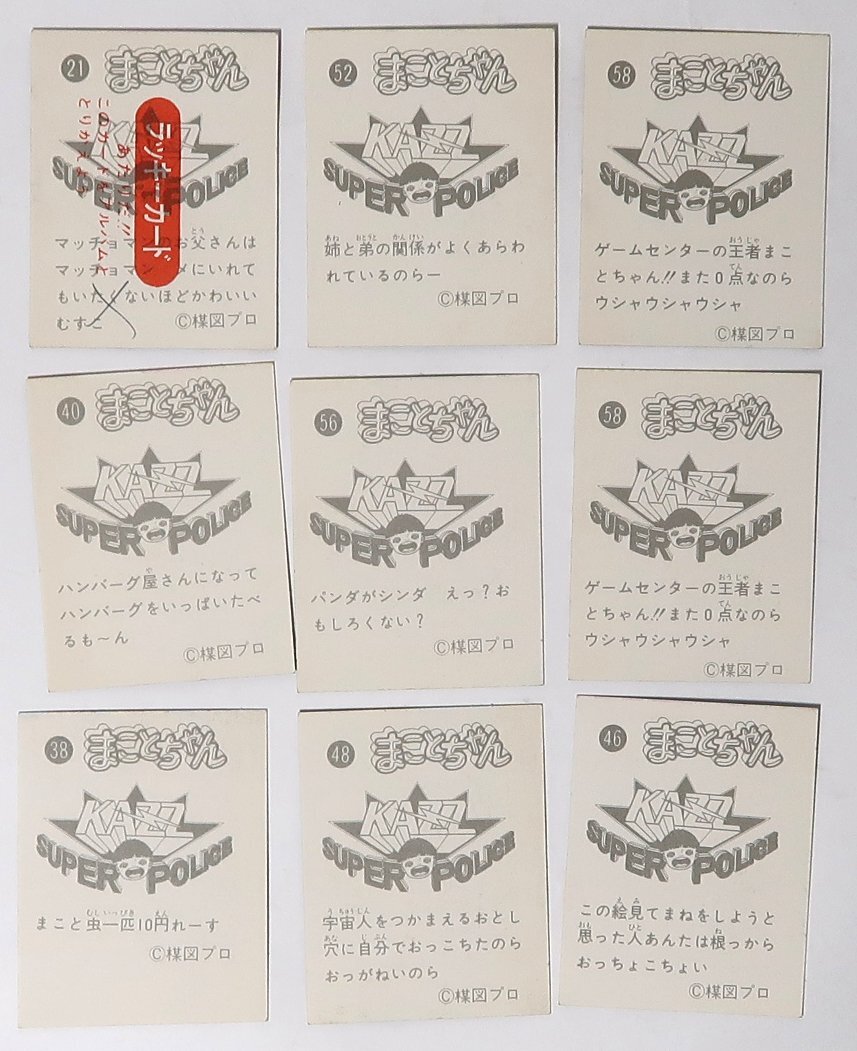 21 まことちゃん
KAZZ
SUPER POLICE
ラッキーカード
あたりだ!!
このカードをアルバムと
とりかえよう
マッチョマン お父さんは
マッチョマン メにいれて
もいたくないほどかわいい
むすこ
Ⓒ楳図プロ
52 まことちゃん
KAZZ
SUPER POLICE
姉と弟の関係がよくあらわ
れているのらー
Ⓒ楳図プロ
58 まことちゃん
KAZZ
SUPER POLICE
ゲームセンターの王者まこ
とちゃん!!また0点なのら
ウシャウシャウシャ
Ⓒ楳図プロ
40 まことちゃん
KAZZ
SUPER POLICE
ハンバーグ屋さんになって
ハンバーグをいっぱいたべ
るも〜ん
Ⓒ楳図プロ
56 まことちゃん
KAZZ
SUPER POLICE
パンダがシンダ えっ?お
もしろくない?
Ⓒ楳図プロ
58 まことちゃん
KAZZ
SUPER POLICE
ゲームセンターの王者まこ
とちゃん!!また0点なのら
ウシャウシャウシャ
Ⓒ楳図プロ
38 まことちゃん
KAZZ
SUPER POLICE
まこと虫一匹10円れーす
Ⓒ楳図プロ
48 まことちゃん
KAZZ
SUPER POLICE
宇宙人をつかまえるおとし
穴に自分でおっこちたのら
おっがねいのら
Ⓒ楳図プロ
46 まことちゃん
KAZZ
SUPER POLICE
この絵見てまねをしようと
思った人あんたは根っから
おっちょこちょい
Ⓒ楳図プロ